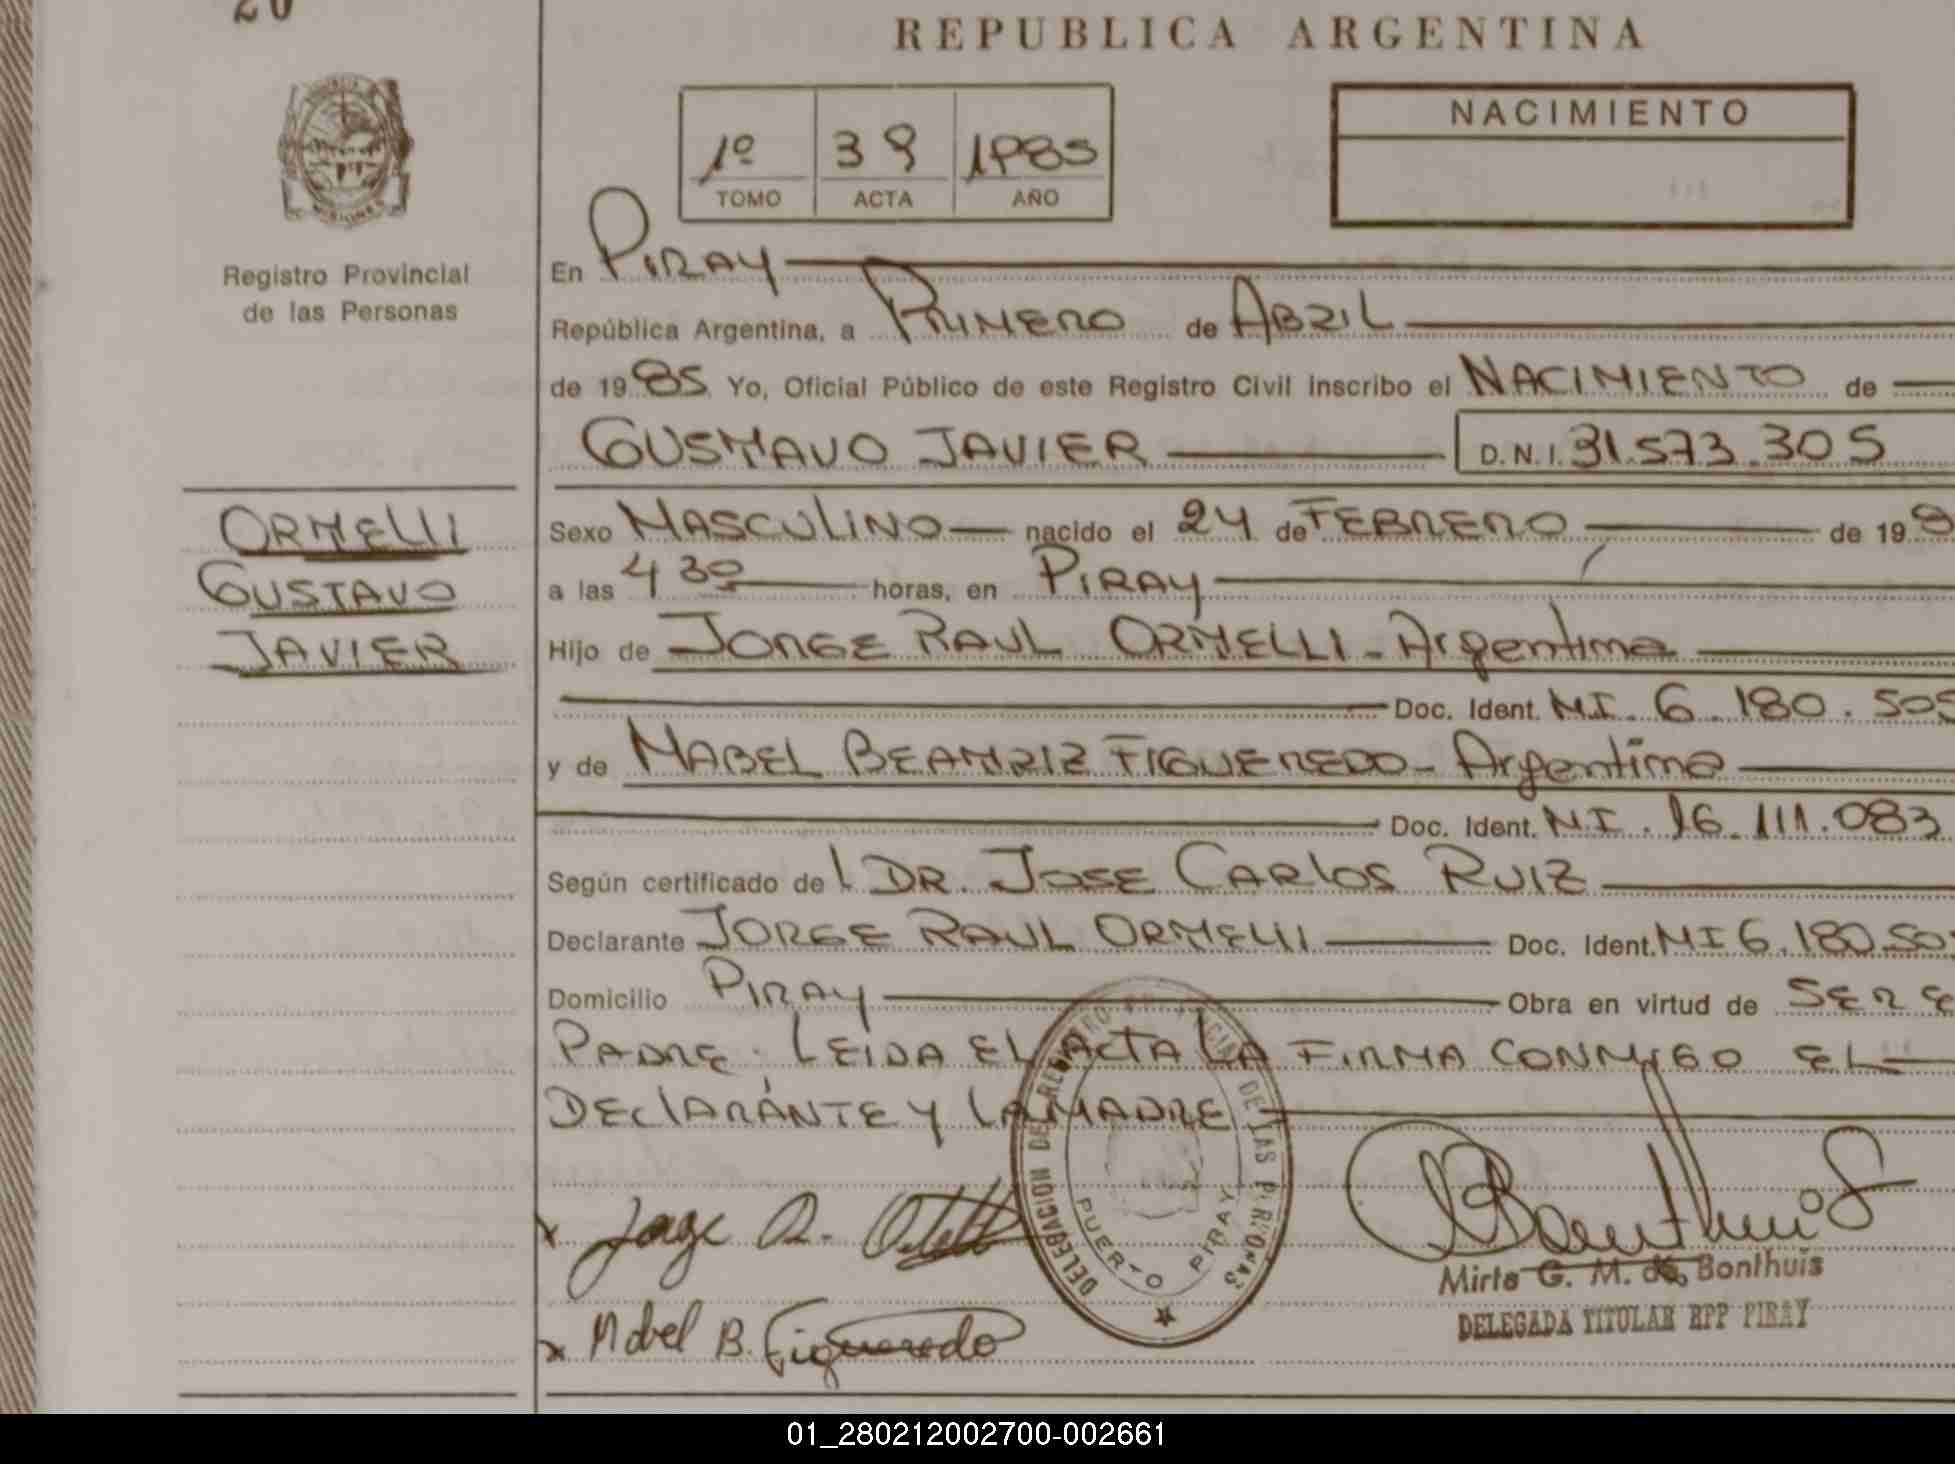 20
REPUBLICA ARGENTINA
PROVINCIA DE MISIONES
Registro Provincial
de las Personas
1º 39 1985
TOMO ACTA AÑO
NACIMIENTO
En PIRAY
República Argentina, a PRIMERO de ABRIL
de 1985 Yo, Oficial Público de este Registro Civil inscribo el NACIMIENTO de
GUSTAVO JAVIER D.N.I. 31.573.305
ORTELLI
GUSTAVO
JAVIER
Sexo MASCULINO nacido el 24 de FEBRERO de 198
a las 4 30 horas, en PIRAY
Hijo de JORGE RAUL ORTELLI - Argentino
Doc. Ident. M.I. 6.180.505
y de MABEL BEATRIZ FIGUEREDO - Argentina
Doc. Ident. M.I. 16.111.083
Según certificado del DR. JOSE CARLOS RUIZ
Declarante JORGE RAUL ORTELLI Doc. Ident. MI 6.180.505
Domicilio PIRAY Obra en virtud de SER E
PADRE. LEIDA EL ACTA LA FIRMA CONMIGO EL
DECLARANTE Y LA MADRE
DELEGACION DEL REGISTRO PROVINCIAL DE LAS PERSONAS
PUERTO PIRAY
Jorge R. Ortelli
Mabel B. Figueredo
Bonthuis
Mirta G. M. de Bonthuis
DELEGADA TITULAR RPP PIRAY
01_280212002700-002661